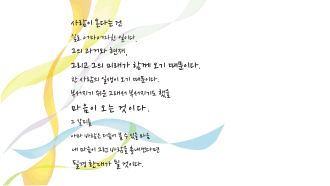 사람이 온다는 건
실은 어마어마한 일이다.
그의 과거와 현재,
그리고 그의 미래가 함께 오기 때문이다.
한 사람의 일생이 오기 때문이다.
부서지기 쉬운 그래서 부서지기도 했을
마음이 오는 것이다.
그 갈피를
아마 바람은 더듬어 볼 수 있을 마음
내 마음이 그런 바람을 흉내낸다면
필경 환대가 될 것이다.